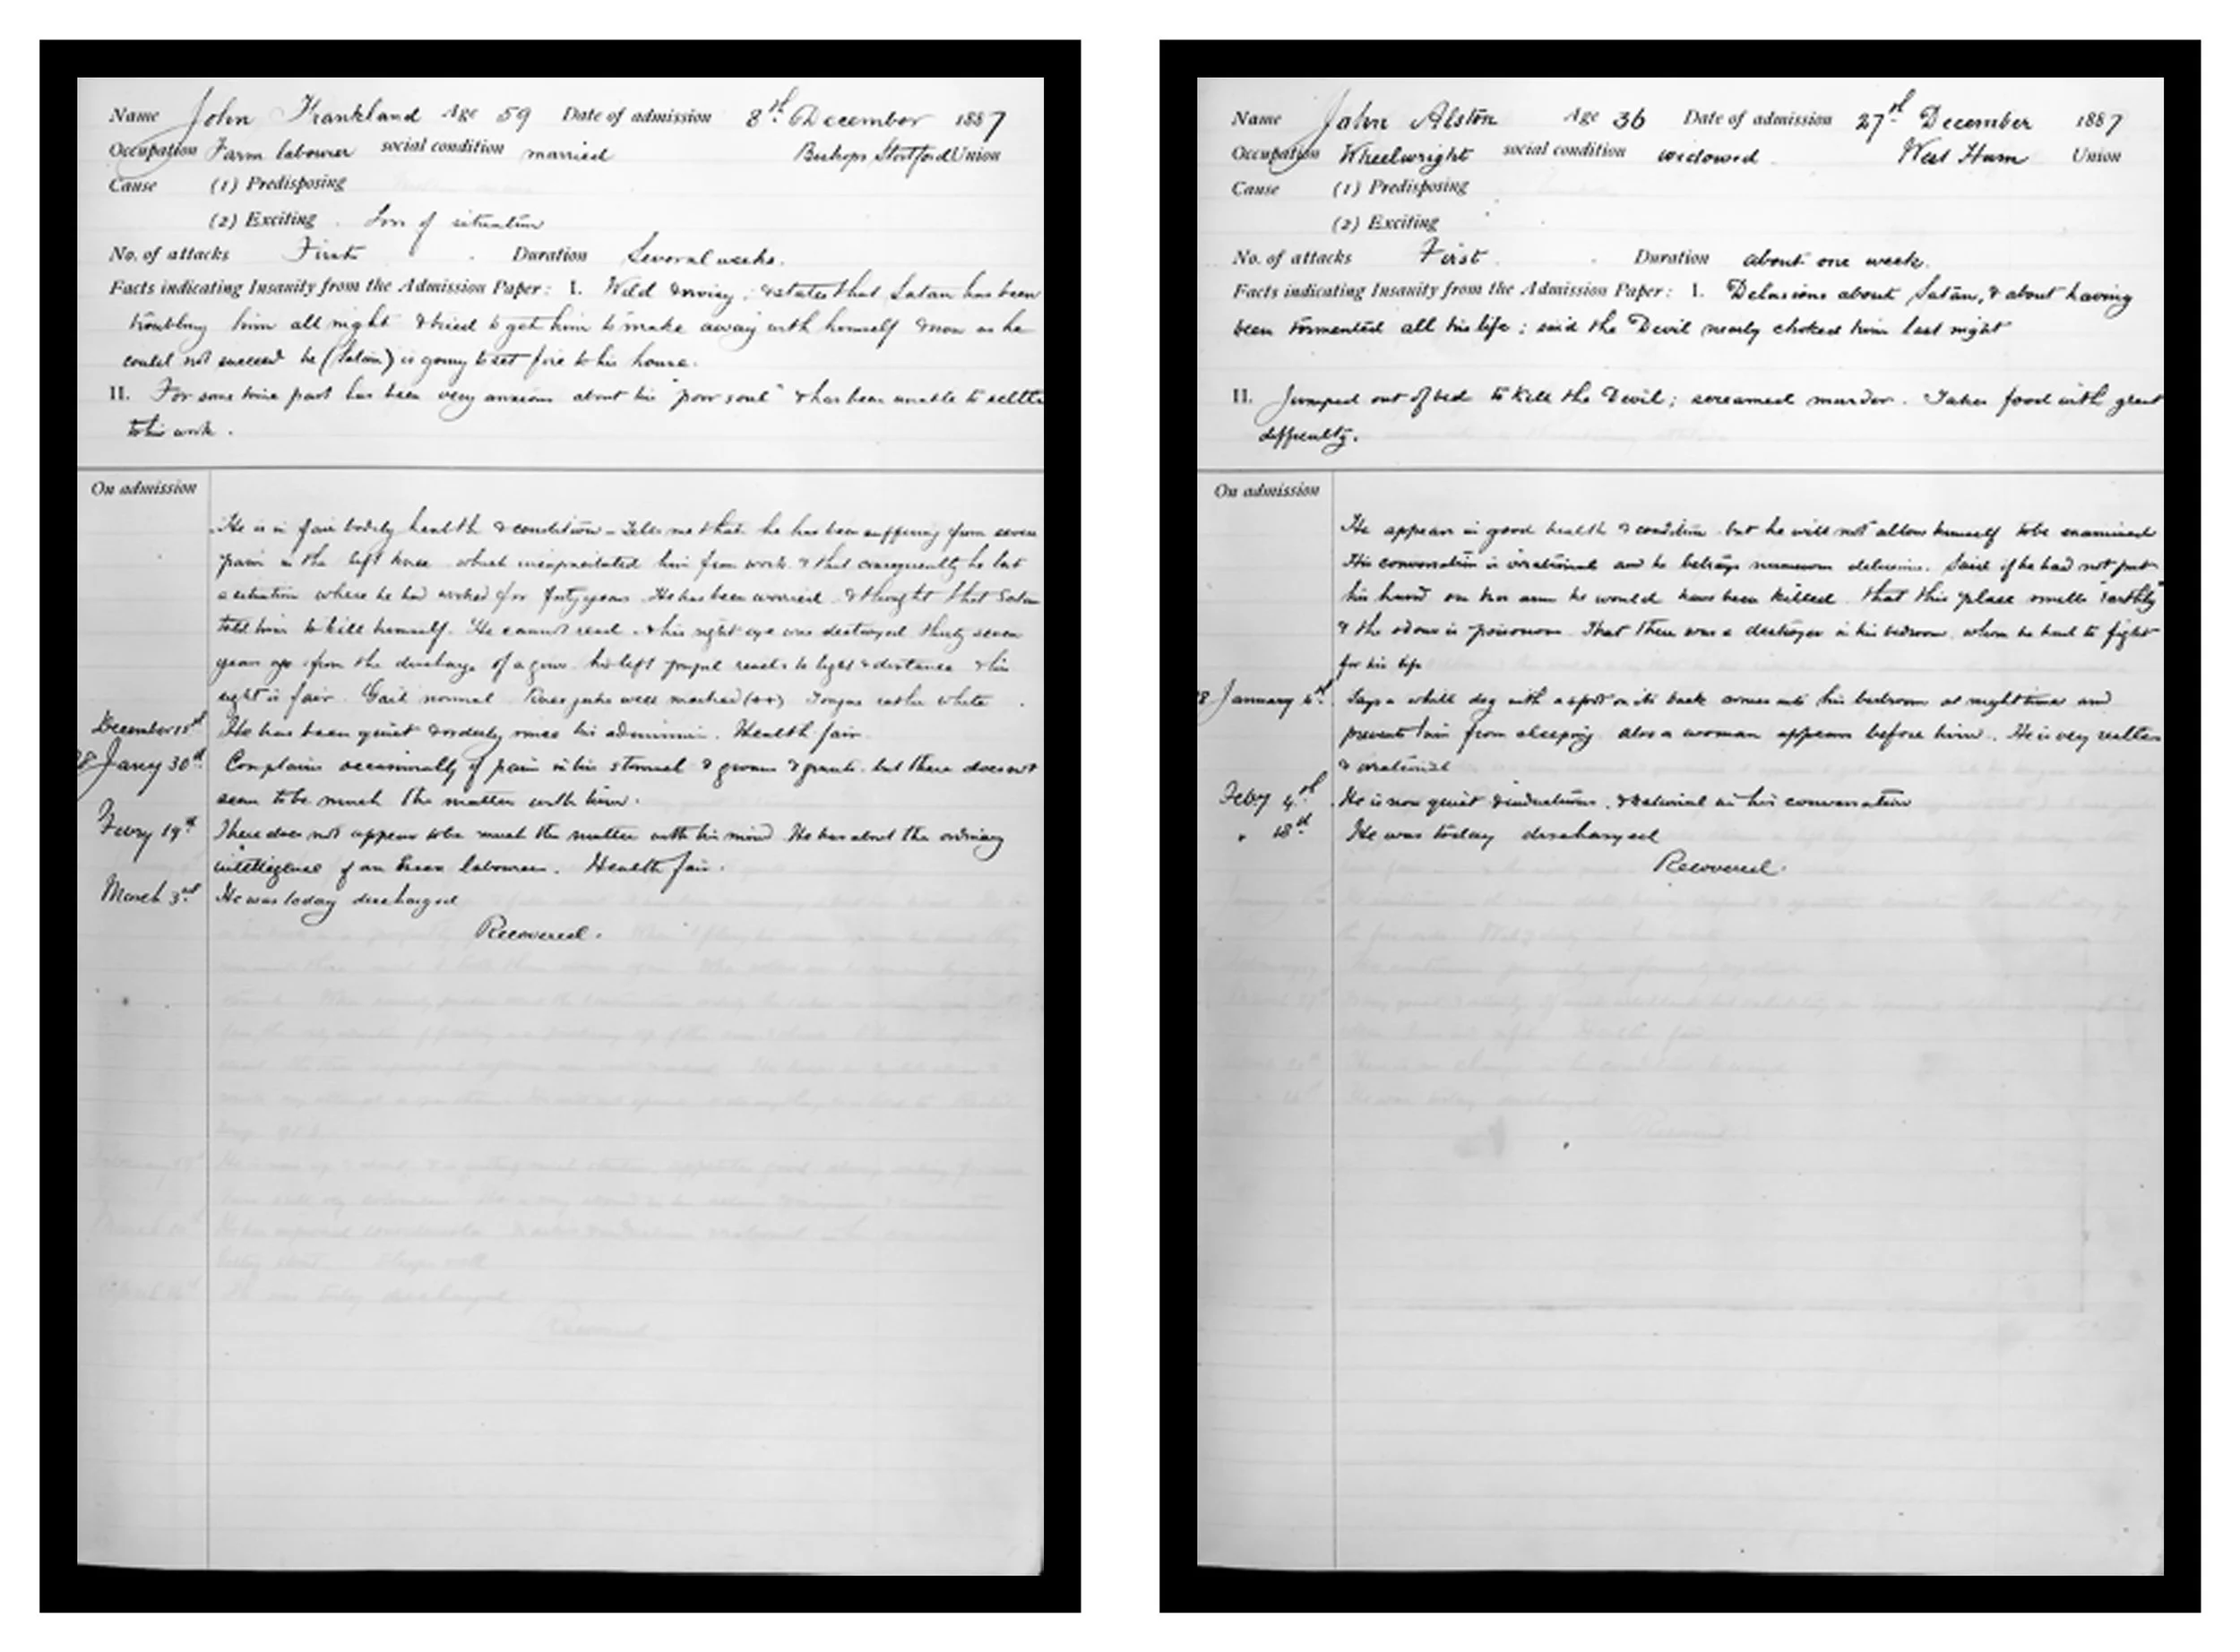 Name John Frankland Age 59 Date of admission 8th December 1887
Occupation Farm labourer social condition married Bishops Stortford Union
Cause (1) Predisposing
(2) Exciting Loss of situation
No. of attacks First Duration Several weeks.
Facts indicating Insanity from the Admission Paper: I. Wild & noisy; & states that Satan has been
troubling him all night & tried to get him to make away with himself & now as he
could not succeed he (Satan) is going to set fire to his house.
II. For some time past has been very anxious about his "poor soul" & has been unable to settle
to his work.
On admission
He is in fair bodily health & condition - Tells me that he has been suffering from severe
pain in the left knee which incapacitated him from work & that consequently he lost
a situation where he had worked for forty years. He has been worried & thought that Satan
told him to kill himself. He cannot read. & his right eye was destroyed thirty seven
years ago from the discharge of a gun. his left pupil reacts to light & distance & his
sight is fair. Gait normal Knee jerks well marked (++) Tongue rather white
December 15th He has been quiet & orderly since his admission. Health fair.
Jany 30th Complains occasionally of pain in his stomach & groans & grunts but there does not
seem to be much the matter with him.
Febry 19th There does not appear to be much the matter with his mind He has about the ordinary
intelligence of an Essex labourer. Health fair.
March 3rd He was today discharged
Recovered.
Name John Alston Age 36 Date of admission 27th December 1887
Occupation Wheelwright social condition widowed West Ham Union
Cause (1) Predisposing
(2) Exciting
No. of attacks First Duration about one week.
Facts indicating Insanity from the Admission Paper: I. Delusions about Satan, & about having
been tormented all his life; said the Devil nearly choked him last night
II. Jumped out of bed to kill the Devil; screamed murder. Takes food with great
difficulty.
On admission
He appears in good health & condition but he will not allow himself to be examined
His conversation is irrational and he betrays numerous delusions. Said if he had not put
his hand on his arm he would have been killed that this place smells "earthly"
& the odour is poisonous. That there was a destroyer in his bedroom whom he had to fight
for his life
January 6th Says a white dog with a spot on its back comes into his bedroom at night time and
prevents him from sleeping also a woman appears before him. He is very restless
& irrational
Febry 4th He is now quiet & industrious, & rational in his conversation
" 18th He was today discharged
Recovered.